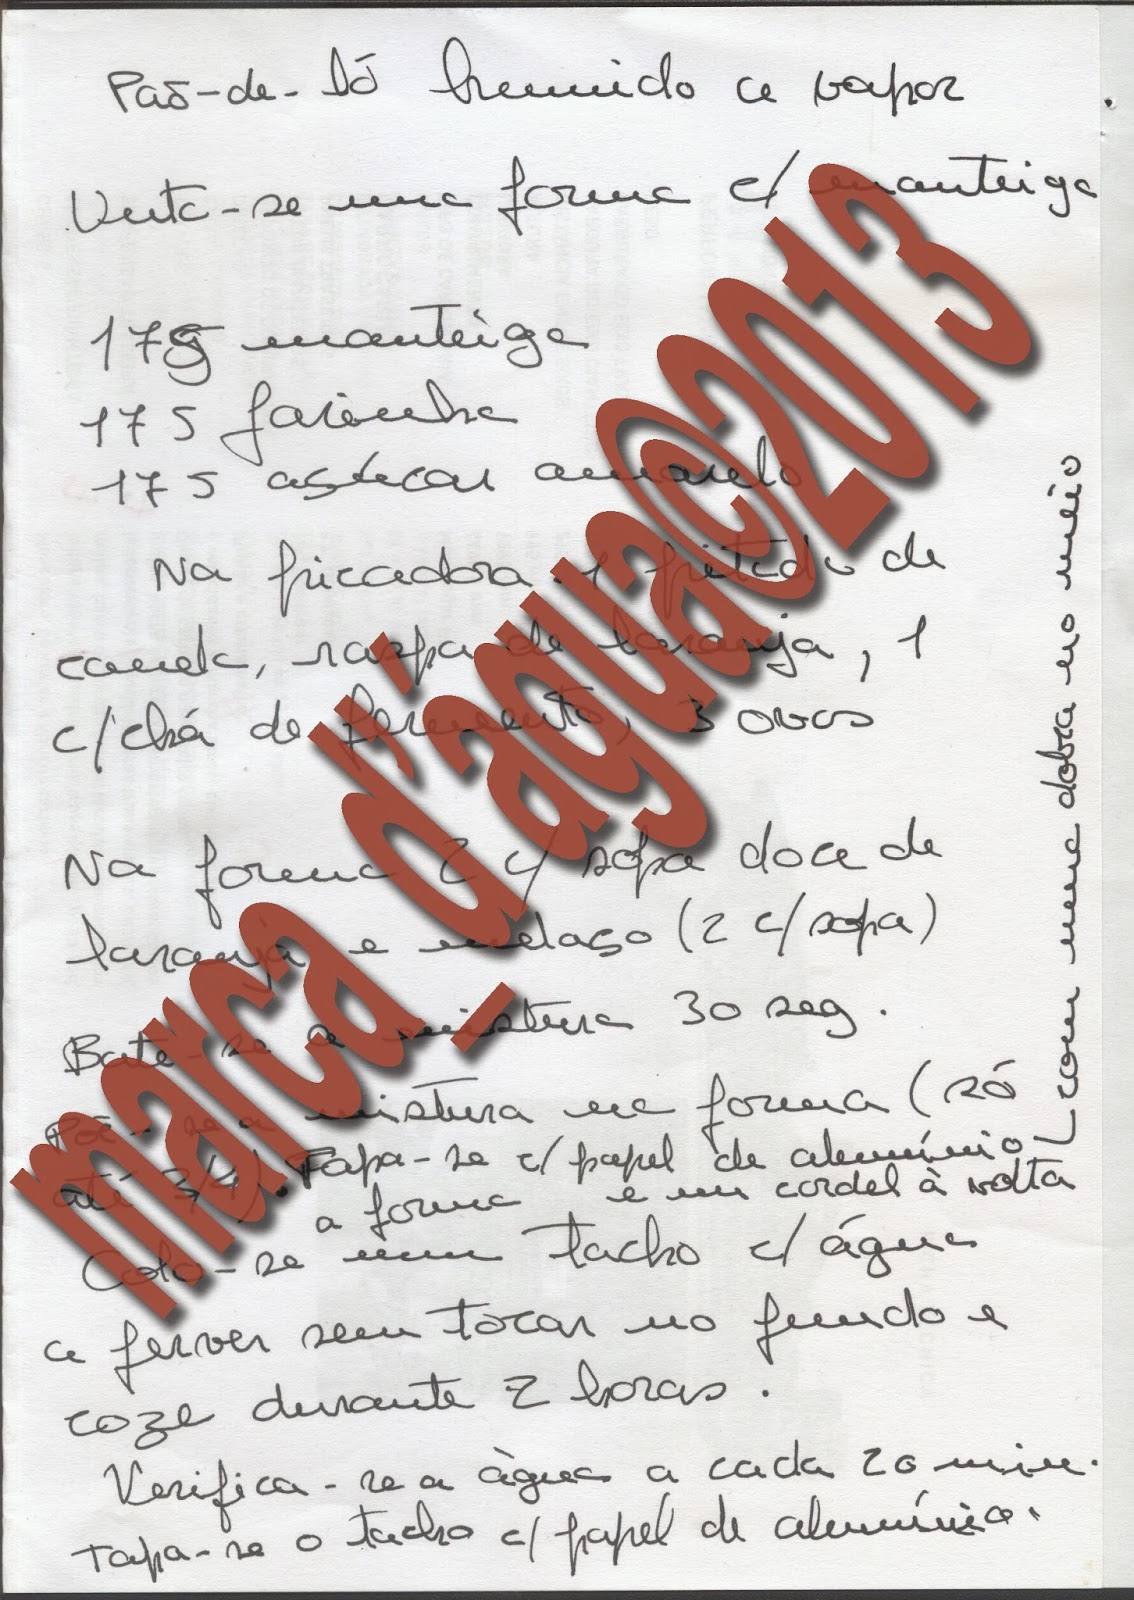 Pão-de-ló húmido a vapor
Unta-se uma forma c/ manteiga
175 manteiga
175 farinha
175 açúcar amarelo
Na picadora 1 pitada de
canela, raspa de laranja, 1
c/chá de fermento, 3 ovos
Na forma 2 c/ sopa doce de
laranja e melaço (2 c/sopa)
Bate-se a mistura 30 seg.
Põe-se a mistura na forma (só
até 3/4). Tapa-se c/ papel de alumínio
com uma dobra no meio
a forma e um cordel à volta
Colo-se num tacho c/ água
a ferver sem tocar no fundo e
coze durante 2 horas.
Verifica-se a àgua a cada 20 min.
Tapa-se o tacho c/ papel de alumínio.
marca_d'agua©2013